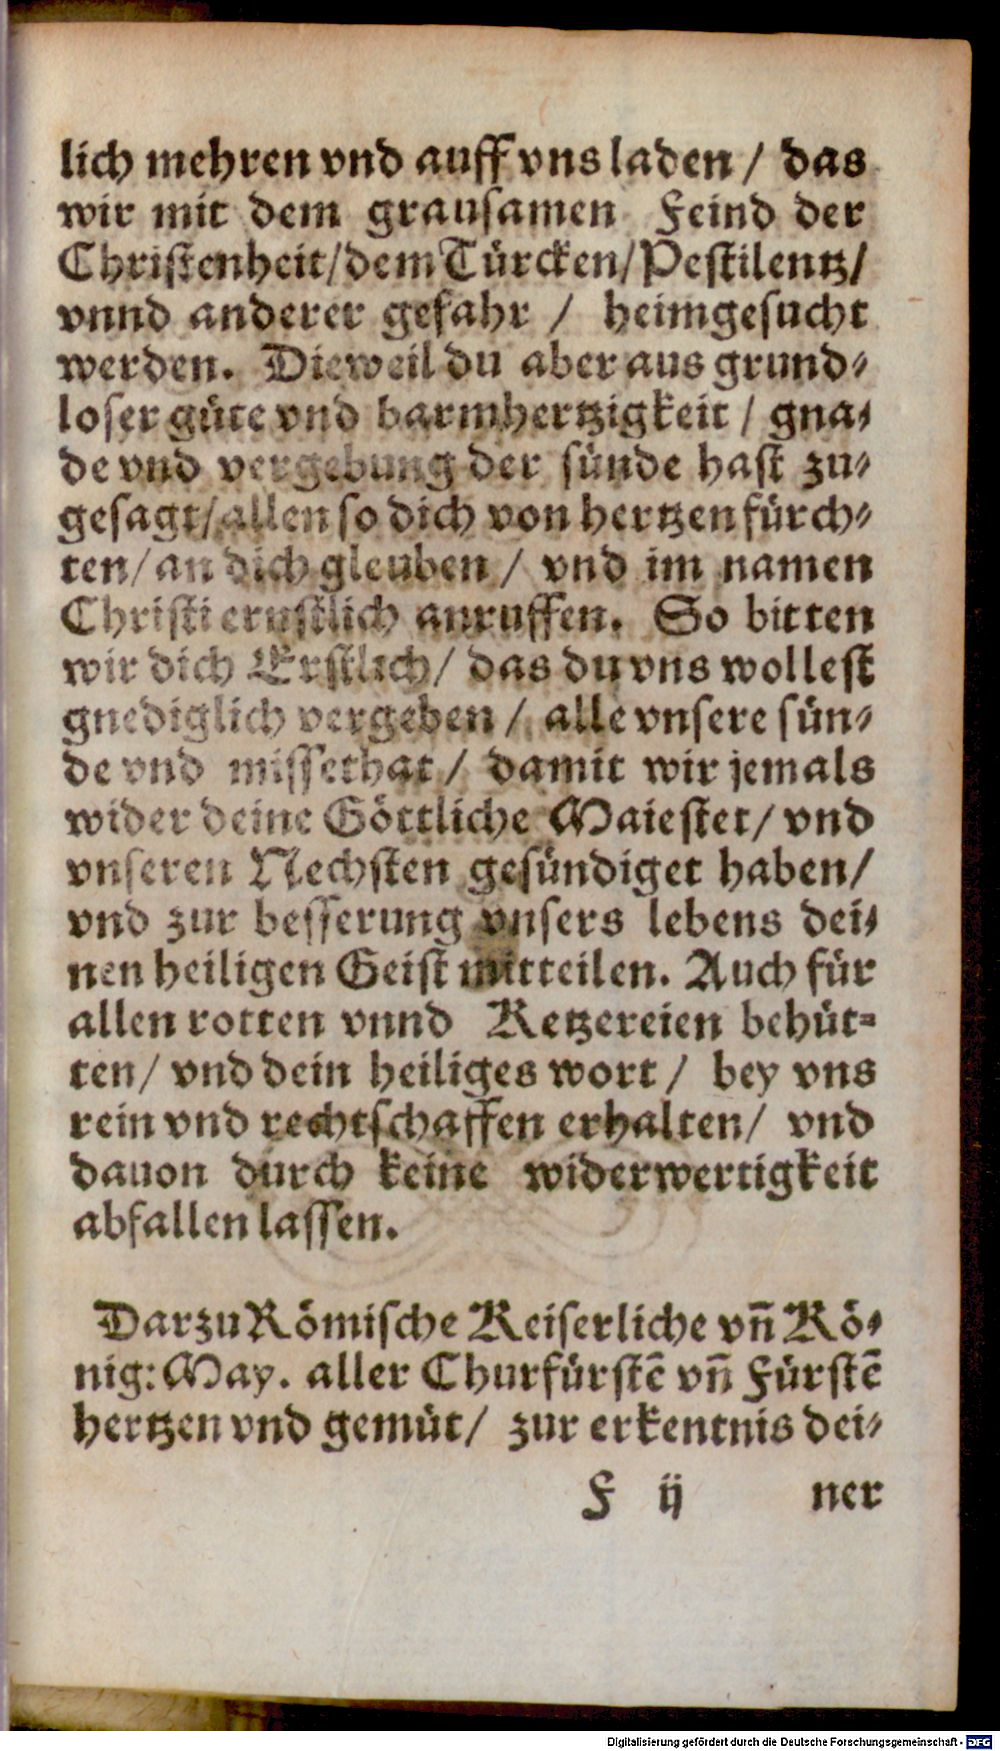 lich mehren vnd auff vns laden / das
wir mit dem grausamen Feind der
Christenheit/dem Türcken/Pestilentz/
vnnd anderer gefahr / heimgesucht
werden. Dieweil du aber aus grund⸗
loser güte vnd barmhertzigkeit / gna⸗
de vnd vergebung der sünde hast zu⸗
gesagt/allen so dich von hertzen fürch⸗
ten/an dich gleuben / vnd im namen
Christi ernstlich anruffen. So bitten
wir dich Erstlich/ das du vns wollest
gnediglich vergeben / alle vnsere sün⸗
de vnd missethat / damit wir jemals
wider deine Göttliche Maiestet/ vnd
vnseren Nechsten gesündiget haben/
vnd zur besserung vnsers lebens dei⸗
nen heiligen Geist mitteilen. Auch für
allen rotten vnnd Ketzereien behüt⸗
ten/ vnd dein heiliges wort / bey vns
rein vnd rechtschaffen erhalten/ vnd
dauon durch keine widerwertigkeit
abfallen lassen.
Darzu Römische Keiserliche vn̄ Kö⸗
nig: May. aller Churfürstē vn̄ Fürstē
hertzen vnd gemüt/ zur erkentnis dei⸗
F ij ner
Digitalisierung gefördert durch die Deutsche Forschungsgemeinschaft - DFG